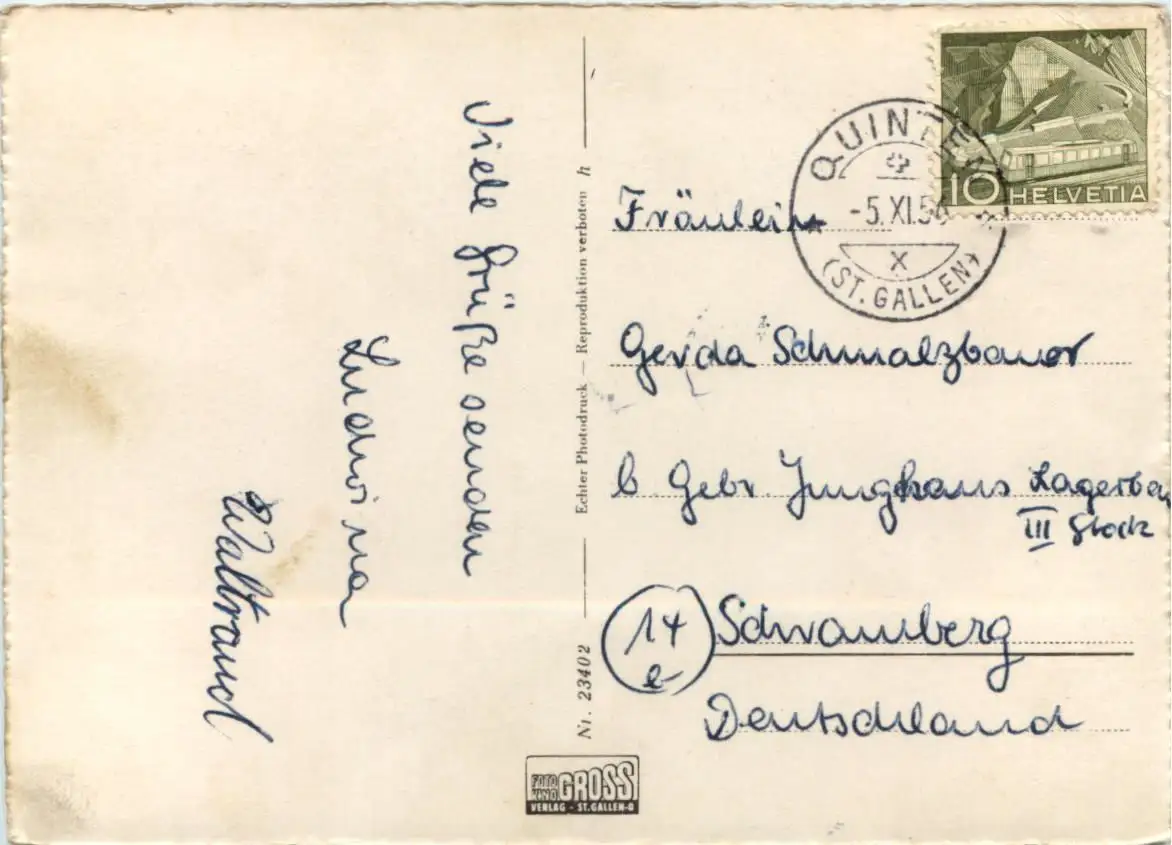 Viele Grüße senden
Ludwina
Waltraud
Nr. 23402
Echter Photodruck — Reproduktion verboten h
FOTO KINO GROSS
VERLAG - ST.GALLEN-O
10 HELVETIA
QUINTEN
-5.XI.5
X
(ST. GALLEN)
Fräulein
Gerda Schmalzbauer
b Gebr Junghans Lagerbau
III Stock
14 Schramberg
Deutschland